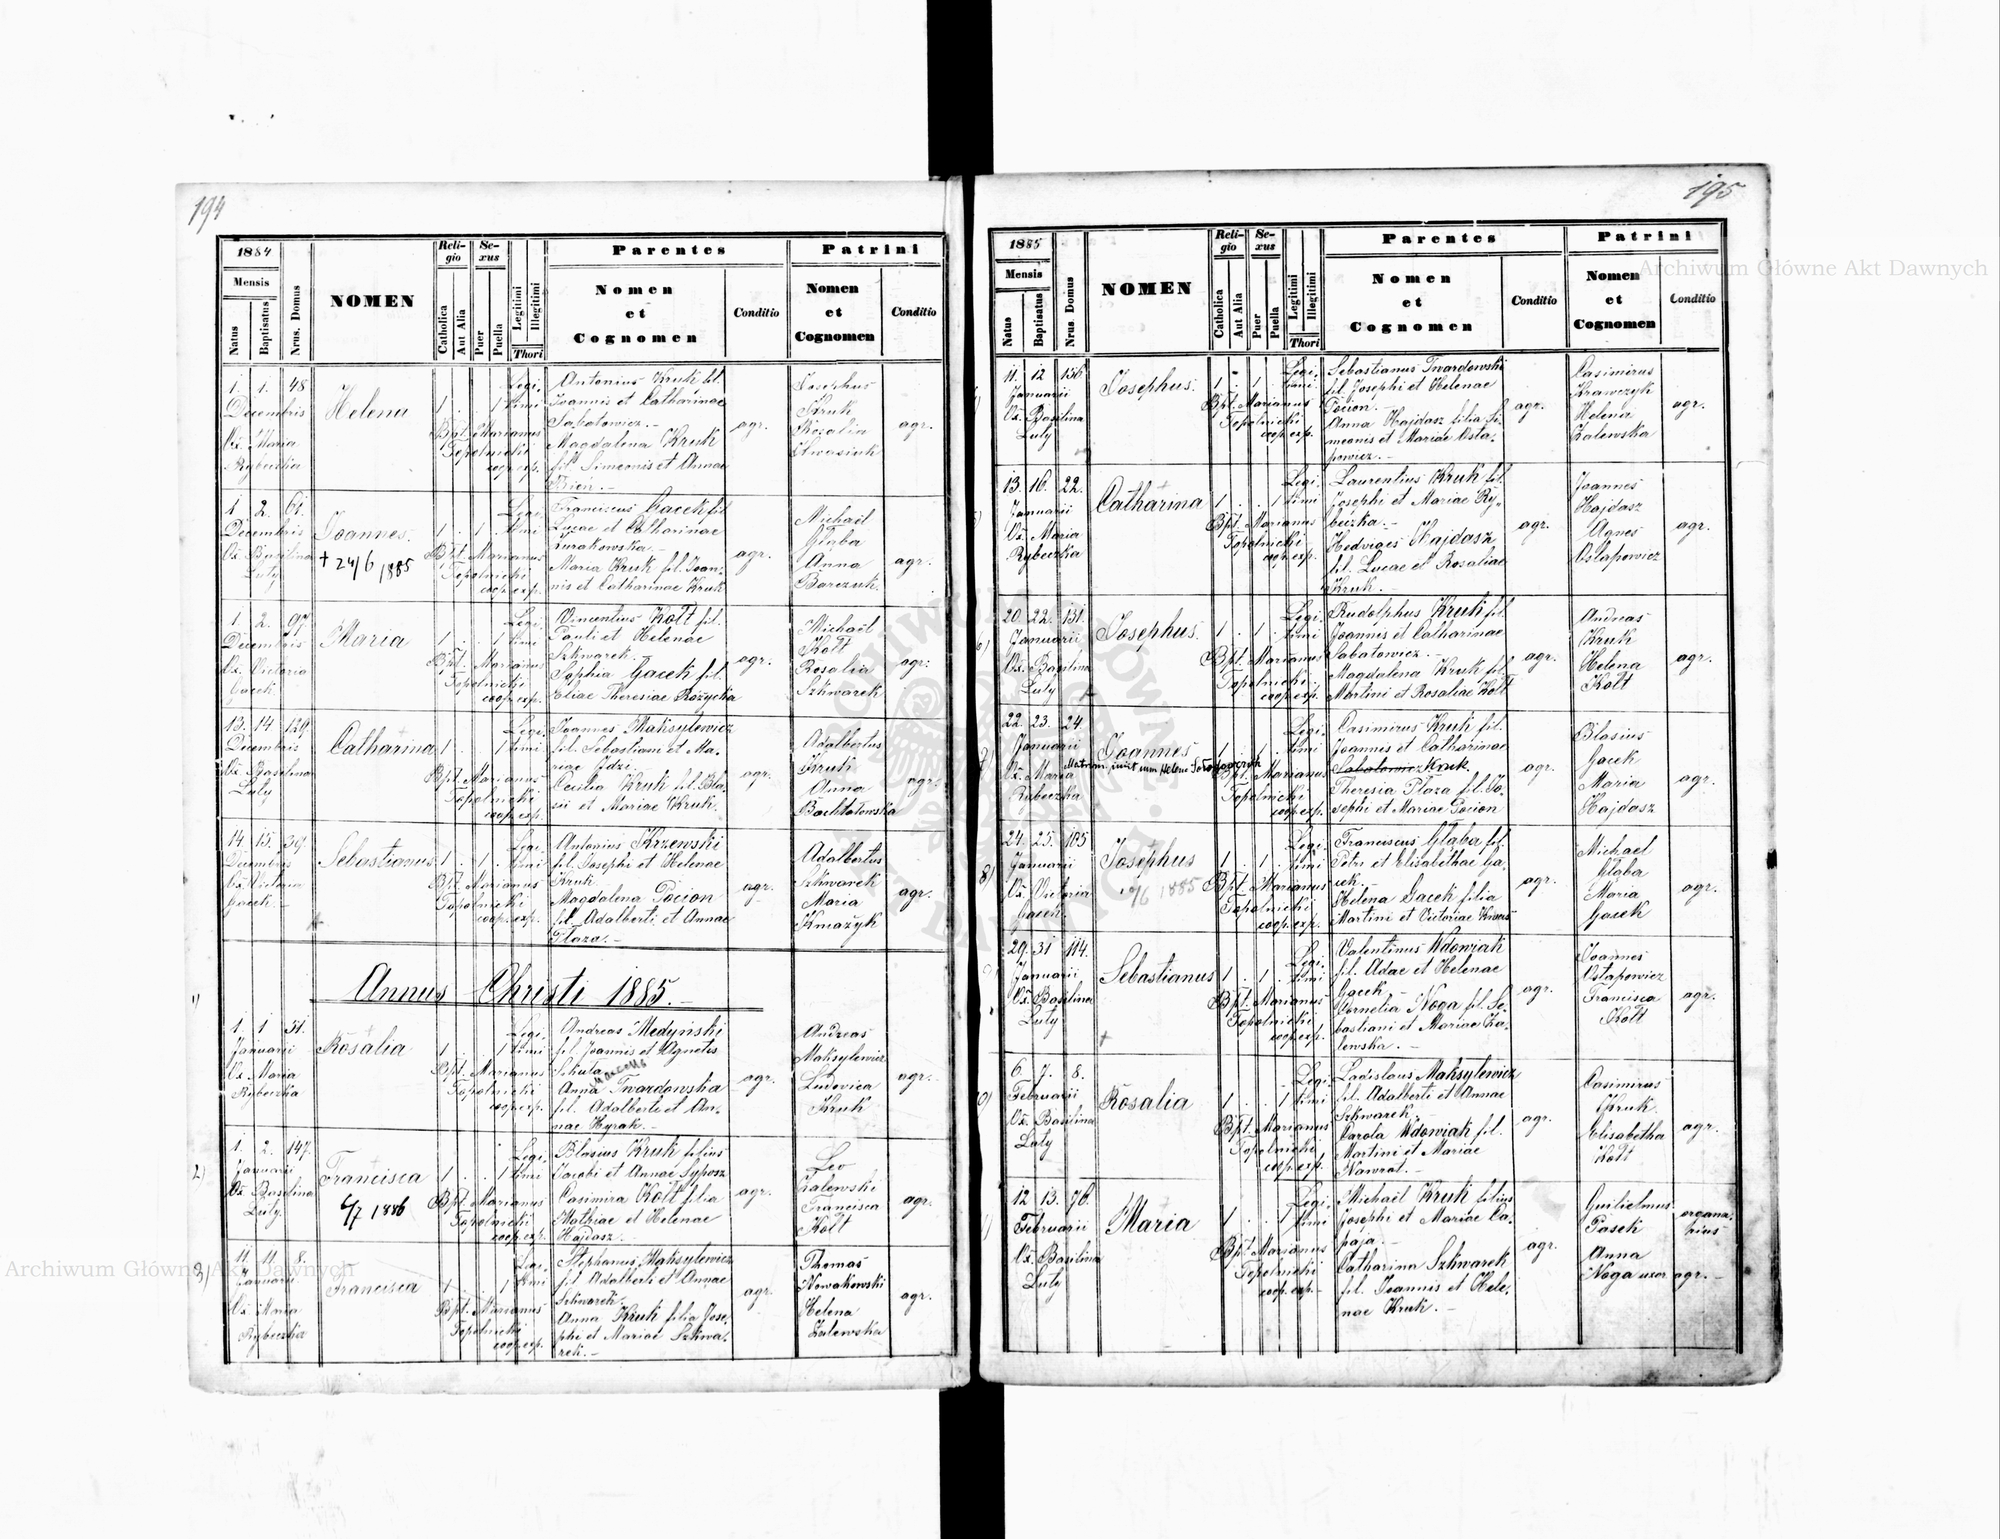 194
1884
Mensis
Natus
Baptisatus
Nrus. Domus
NOMEN
Reli-
gio
Catholica
Aut Alia
Se-
xus
Puer
Puella
Legitimi
Illegitimi
Thori
Parentes
Nomen
et
Cognomen
Conditio
Patrini
Nomen
et
Cognomen
Conditio
1. 1. 48
Decembris
Ox. Maria
Rybeczka
Helena
1 . . 1
Legi-
timi
Bpt. Marianus
Topolnicki
coop. exp.
Antonius Kruk fil.
Joannis et Catharinae
Sabatowicz.-
Magdalena Kruk
fil. Simeonis et Annae
Bień.-
agr.
Josephus
Kruk
Rosalia
agr.
1 2. 61.
Decembris
Ox. Basilina
Luty
Joannes.
† 24/6 1885
1 . 1 .
Legi-
timi
Bpt. Marianus
Topolnicki
coop. exp.
Franciscus Gacek fil
Lucae et Catharinae
Żurakowska.-
Maria Kruk fil. Joan-
nis et Catharinae Kruk
agr.
Michael
Głąba
Anna
Barczuk.
agr.
1. 2. 97.
Decembris
Ox. Victoria
Gacek.
Maria
1 . . 1
Legi.
timi
Bpt. Marianus
Topolnicki
coop. exp.
Vincentius Kołt fil.
Pauli et Helenae
Szkwarek.
Sophia Gacek fil.
Eliae Theresiae Rozycka
agr.
Michael
Kołt
Rosalia
Szkwarek
agr:
13. 14. 129.
Decembris
Ox. Basilina
Luty
Catharina
1 . . 1
Legi.
timi
Bpt. Marianus
Topolnicki
coop. exp.
Joannes Maksylewicz
fil. Sebastiani et Ma-
riae Idzi.-
Cecilia Kruk fil. Bla-
sii et Mariae Kruk.
agr.
Adalbertus
Kruk
Anna
Bachtałowska
agr.
14. 15. 39.
Decembris
Ox. Victoria
Gacek.-
Sebastianus
1 . 1 .
Legi.
timi
Bpt. Marianus
Topolnicki
coop. exp.
Antonius Skrzewski
fil. Josephi et Helenae
Kruk
Magdalena Pocion
fil. Adalberti et Annae
Płaza.-
agr.
Adalbertus
Szkwarek
Maria
Kmażyk
agr.
Annus Christi 1885.-
1)
1. 1 51.
Januarii
Ox. Maria
Rybeczka
Rosalia
1 . . 1
Legi.
timi
Bpt. Marianus
Topolnicki
coop. exp.
Andreas Medyński
fil. Joannis et Agnetis
Sikula
Anna Twardowska
fil. Adalberti et An-
nae Hyrak.-
agr.
Andreas
Maksylewicz
Ludovica
Kruk
agr.
2)
1. 2. 147.
Januarii
Ox. Basilina
Luty.
Francisca
6/7 1886
1 . . 1
Legi.
timi
Bpt. Marianus
Topolnicki
coop. exp.
Blasius Kruk filius
Jacobi et Annae Syposz
Casimira Kołt filia
Mathiae et Helenae
Hajdasz.-
agr.
Leo
Zalewski
Francisca
Kołt
agr.
3)
11. 11. 8.
Januarii
Ox. Maria
Rybeczka
Francisca
1 . . 1
Legi.
timi
Bpt. Marianus
Topolnicki
coop. exp.
Stephanus Maksylewicz
fil. Adalberti et Annae
Szkwarek.
Anna Kruk filia Jose-
phi et Mariae Szkwa-
rek.-
agr.
Thomas
Nowakowski
Helena
Zalewska
agr.
195
1885
Mensis
Natus
Baptisatus
Nrus. Domus
NOMEN
Reli-
gio
Catholica
Aut Alia
Se-
xus
Puer
Puella
Legitimi
Illegitimi
Thori
Parentes
Nomen
et
Cognomen
Conditio
Patrini
Nomen
et
Cognomen
Conditio
11. 12 156
Januarii
Ox. Basilina
Luty
Josephus.
1 . 1 .
Legi.
timi.
Bpt. Marianus
Topolnicki
coop. exp.
Sebastianus Twardowski
fil. Josephi et Helenae
Pocion.-
Anna Hajdasz filia Si-
meonis et Mariae Osta-
powicz.-
agr.
Casimirus
Krawczyk
Helena
Zalewska
agr.
13. 16. 22.
Januarii
Ox. Maria
Rybeczka
Catharina
1 . . 1
Legi.
timi
Bpt. Marianus
Topolnicki
coop. exp.
Laurentius Kruk fil.
Josephi et Mariae Ry-
beczka.-
Hedviges Hajdasz
fil. Lucae et Rosaliae
Kruk.-
agr.
Joannes
Hajdasz
Agnes
Ostapowicz
agr.
6)
20. 22. 131.
Januarii
Ox. Basilina
Luty
Josephus.
1 . 1 .
Legi.
timi
Bpt. Marianus
Topolnicki
coop. exp.
Rudolphus Kruk fil.
Joannis et Catharinae
Sabatowicz.-
Magdalena Kruk fil.
Martini et Rosaliae Kołt
agr.
Andreas
Kruk
Helena
Kołt
agr.
22. 23. 24.
Januarii
Ox. Maria
Rybeczka
Joannes
1 . 1 .
Legi.
timi
Bpt. Marianus
Topolnicki
coop. exp.
Casimirus Kruk fil.
Joannis et Catharinae
Sabatowicz Kruk.
Theresia Płaza fil. Jo-
sephi et Mariae Pocion
agr.
Blasius
Gacek
Maria
Hajdasz
agr.
8)
24. 25. 105
Januarii
Ox. Victoria
Gacek.
Josephus
1 . 1 .
Legi.
timi
Bpt. Marianus
Topolnicki
coop. exp.
Franciscus Głąba fil.
Petri et Elisabethae Ga-
cek.-
Helena Gacek filia
Martini et Victoriae
agr.
Michael
Głąba
Maria
Gacek
agr.
29. 31 114.
Januarii
Ox. Basilina
Luty
Sebastianus
1 . 1 .
Legi.
timi
Bpt. Marianus
Topolnicki
coop. exp.
Valentinus Wdowiak
fil. Adae et Helenae
Gacek.-
Cornelia Noga fil. Se-
bastiani et Mariae Za-
lewska.-
agr.
Joannes
Ostapowicz
Francisca
Kołt
agr.
6. 7. 8.
Februarii
Ox. Basilina
Luty
Rosalia
1 . . 1
Legi.
timi
Bpt. Marianus
Topolnicki
coop. exp.
Ladislaus Maksylewicz
fil. Adalberti et Annae
Szkwarek.-
Carola Wdowiak fil.
Martini et Mariae
Nawrot.-
agr.
Casimirus
Kruk.
Elisabetha
Kołt
agr.
12 13. 76.
Februarii
Ox. Basilina
Luty
Maria
1 . . 1
Legi.
timi
Bpt. Marianus
Topolnicki
coop. exp.-
Michael Kruk filius
Josephi et Mariae Ca-
paja.-
Catharina Szkwarek
fil. Joannis et Hele-
nae Kruk.-
agr.
Guilielmus
Pasek
Anna
Noga uxor
organa-
rius
agr.-
Archiwum Główne Akt Dawnych
Archiwum Główne Akt Dawnych